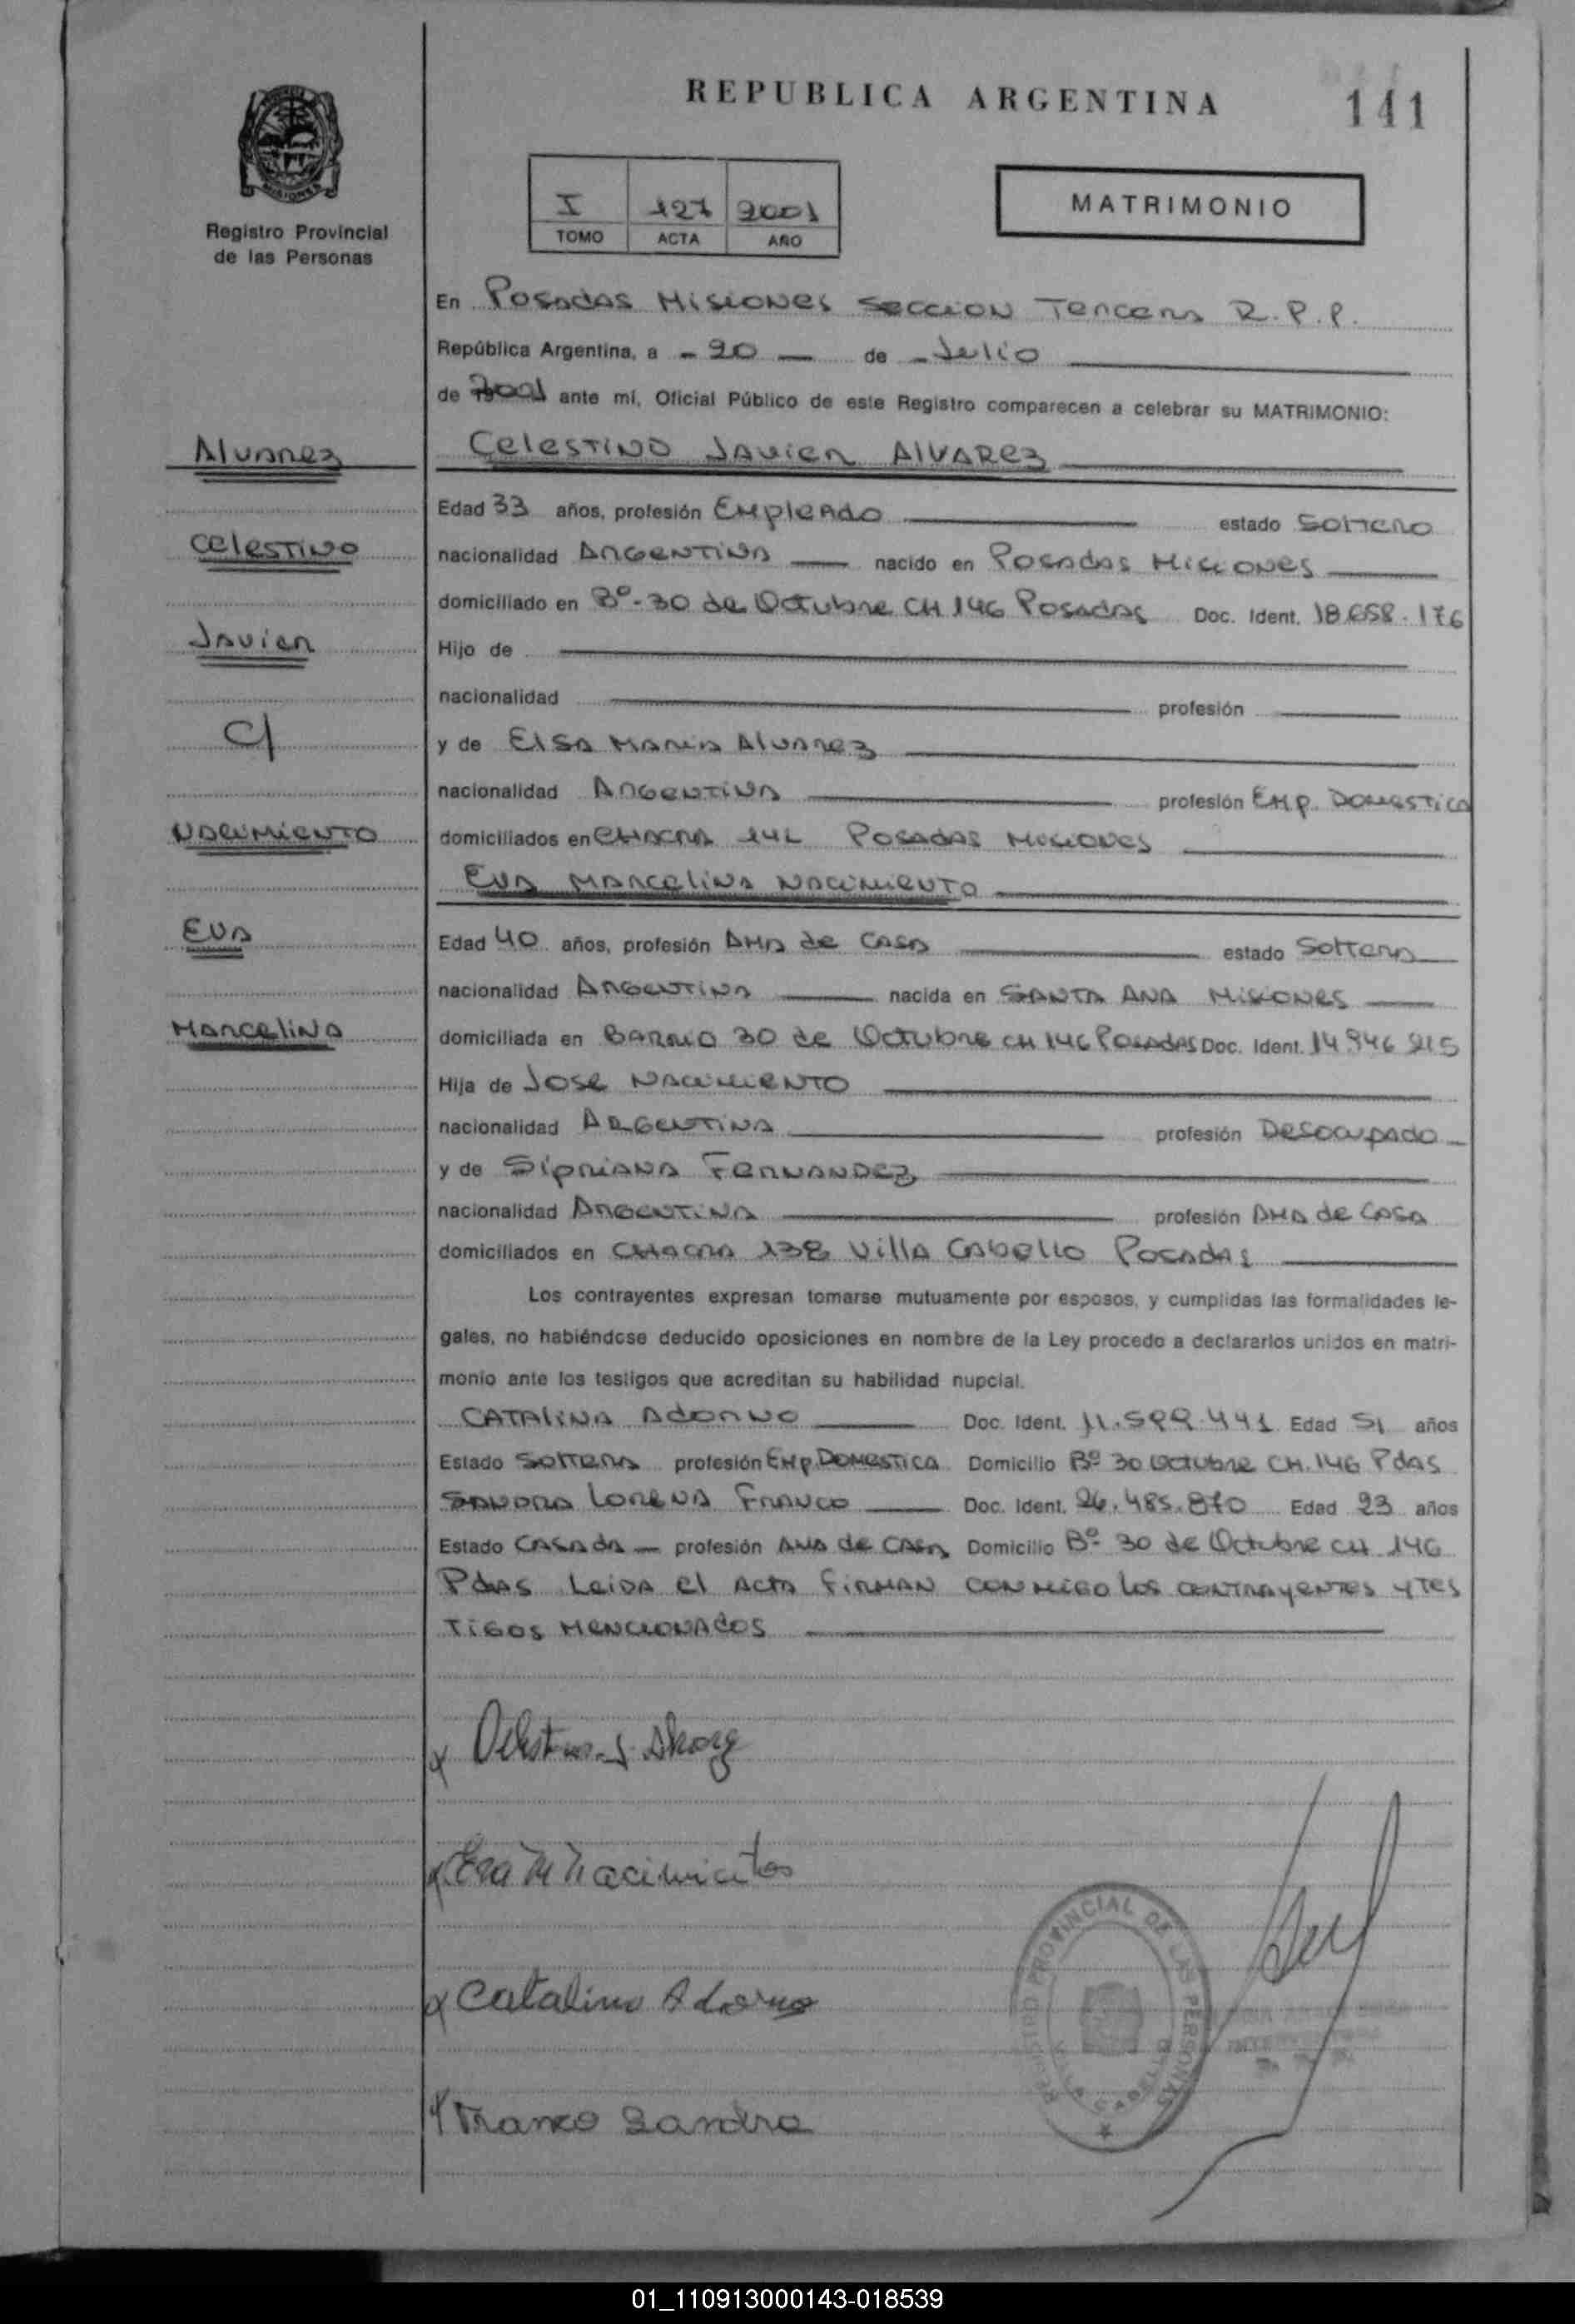 REPUBLICA ARGENTINA
141
Registro Provincial
de las Personas
I 127 2001
TOMO ACTA AÑO
MATRIMONIO
En Posadas Misiones Seccion Tercera R.P.P.
República Argentina, a - 20 — de - Julio
de 2001 ante mí, Oficial Público de este Registro comparecen a celebrar su MATRIMONIO:
Alvarez
Celestino Javier Alvarez
Edad 33 años, profesión Empleado estado Soltero
Celestino
nacionalidad Argentina nacido en Posadas Misiones
domiciliado en Bº-30 de Octubre CH 146 Posadas Doc. Ident. 18.658.176
Javier
Hijo de
nacionalidad profesión
C/
y de Elsa Maria Alvarez
nacionalidad Argentina profesión Emp. Domestica
Nacimiento
domiciliados en Chacra Posadas Misiones
Eva Marcelina Nacimiento
Eva
Edad 40 años, profesión Ama de Casa estado Soltera
nacionalidad Argentina nacida en Santa Ana Misiones
Marcelina
domiciliada en Barrio 30 de Octubre CH 146 Posadas Doc. Ident. 14.946
Hija de Jose Nacimiento
nacionalidad Argentina profesión Desocupado
y de Sipriana Fernandez
nacionalidad Argentina profesión Ama de Casa
domiciliados en Chacra 138 Villa Cabello Posadas
Los contrayentes expresan tomarse mutuamente por esposos, y cumplidas las formalidades le-
gales, no habiéndose deducido oposiciones en nombre de la Ley procedo a declararlos unidos en matri-
monio ante los testigos que acreditan su habilidad nupcial.
Catalina Adorno Doc. Ident. 11.599.441 Edad 51 años
Estado Soltera profesión Emp. Domestica Domicilio Bº 30 Octubre CH. 146 Pdas
Sandra Lorena Franco Doc. Ident. 26.485.870 Edad 23 años
Estado Casada — profesión Ama de Casa Domicilio Bº 30 de Octubre CH 146
Pdas Leida el Acta firman conmigo los contrayentes y tes
tigos mencionados
Celestino J. Alvarez
Eva M Nacimiento
Catalina Adorno
Franco Sandra
REGISTRO PROVINCIAL DE LAS PERSONAS
01_110913000143-018539